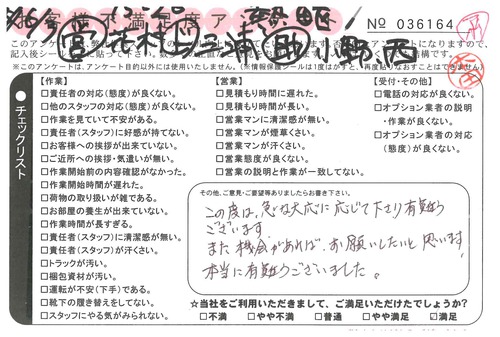 お客様不満足度ア
No 036164
※このアンケートは、アンケート目的以外には使用いたしません。(※情報保護シールは1度がすと、再度貼りなおすことはできません)
チェックリスト
【作業】
□責任者の対応(態度)が良くない。
□他のスタッフの対応(態度)が良くない。
□作業を見ていて不安がある。
□責任者(スタッフ)に好感が持てない。
□お客様への挨拶が出来ていない。
□ご近所への挨拶・気遣いが無い。
□作業開始前の内容確認がなかった。
□作業開始時間が遅れた。
□荷物の取り扱いが雑である。
□お部屋の養生が出来ていない。
□作業時間が長すぎる。
□責任者(スタッフ)に清潔感が無い。
□責任者(スタッフ)が汗くさい。
□トラックが汚い。
□梱包資材が汚い。
□運転が不安(下手)である。
□靴下の履き替えをしてない。
□スタッフにやる気がみられない。
【営業】
□見積もり時間に遅れた。
□見積もり時間が長い。
□営業マンに清潔感が無い。
□営業マンが煙草くさい。
□営業マンが汗くさい。
□営業態度が良くない。
□営業の説明と作業が一致してない。
【受付・その他】
□電話の対応が良くない。
□オプション業者の説明
・作業が良くない。
□オプション業者の対応
(態度)が良くない。
その他、ご意見・ご要望等ありましたらお書き下さい。
この度は、急な対応に応じて下さり有難う
ございます。
また機会があれば、お願いしたいと思います。
本当に有難うございました。
☆当社をご利用いただきまして、ご満足いただけたでしょうか?
□不満 □やや不満 □普通 □やや満足 ☑満足